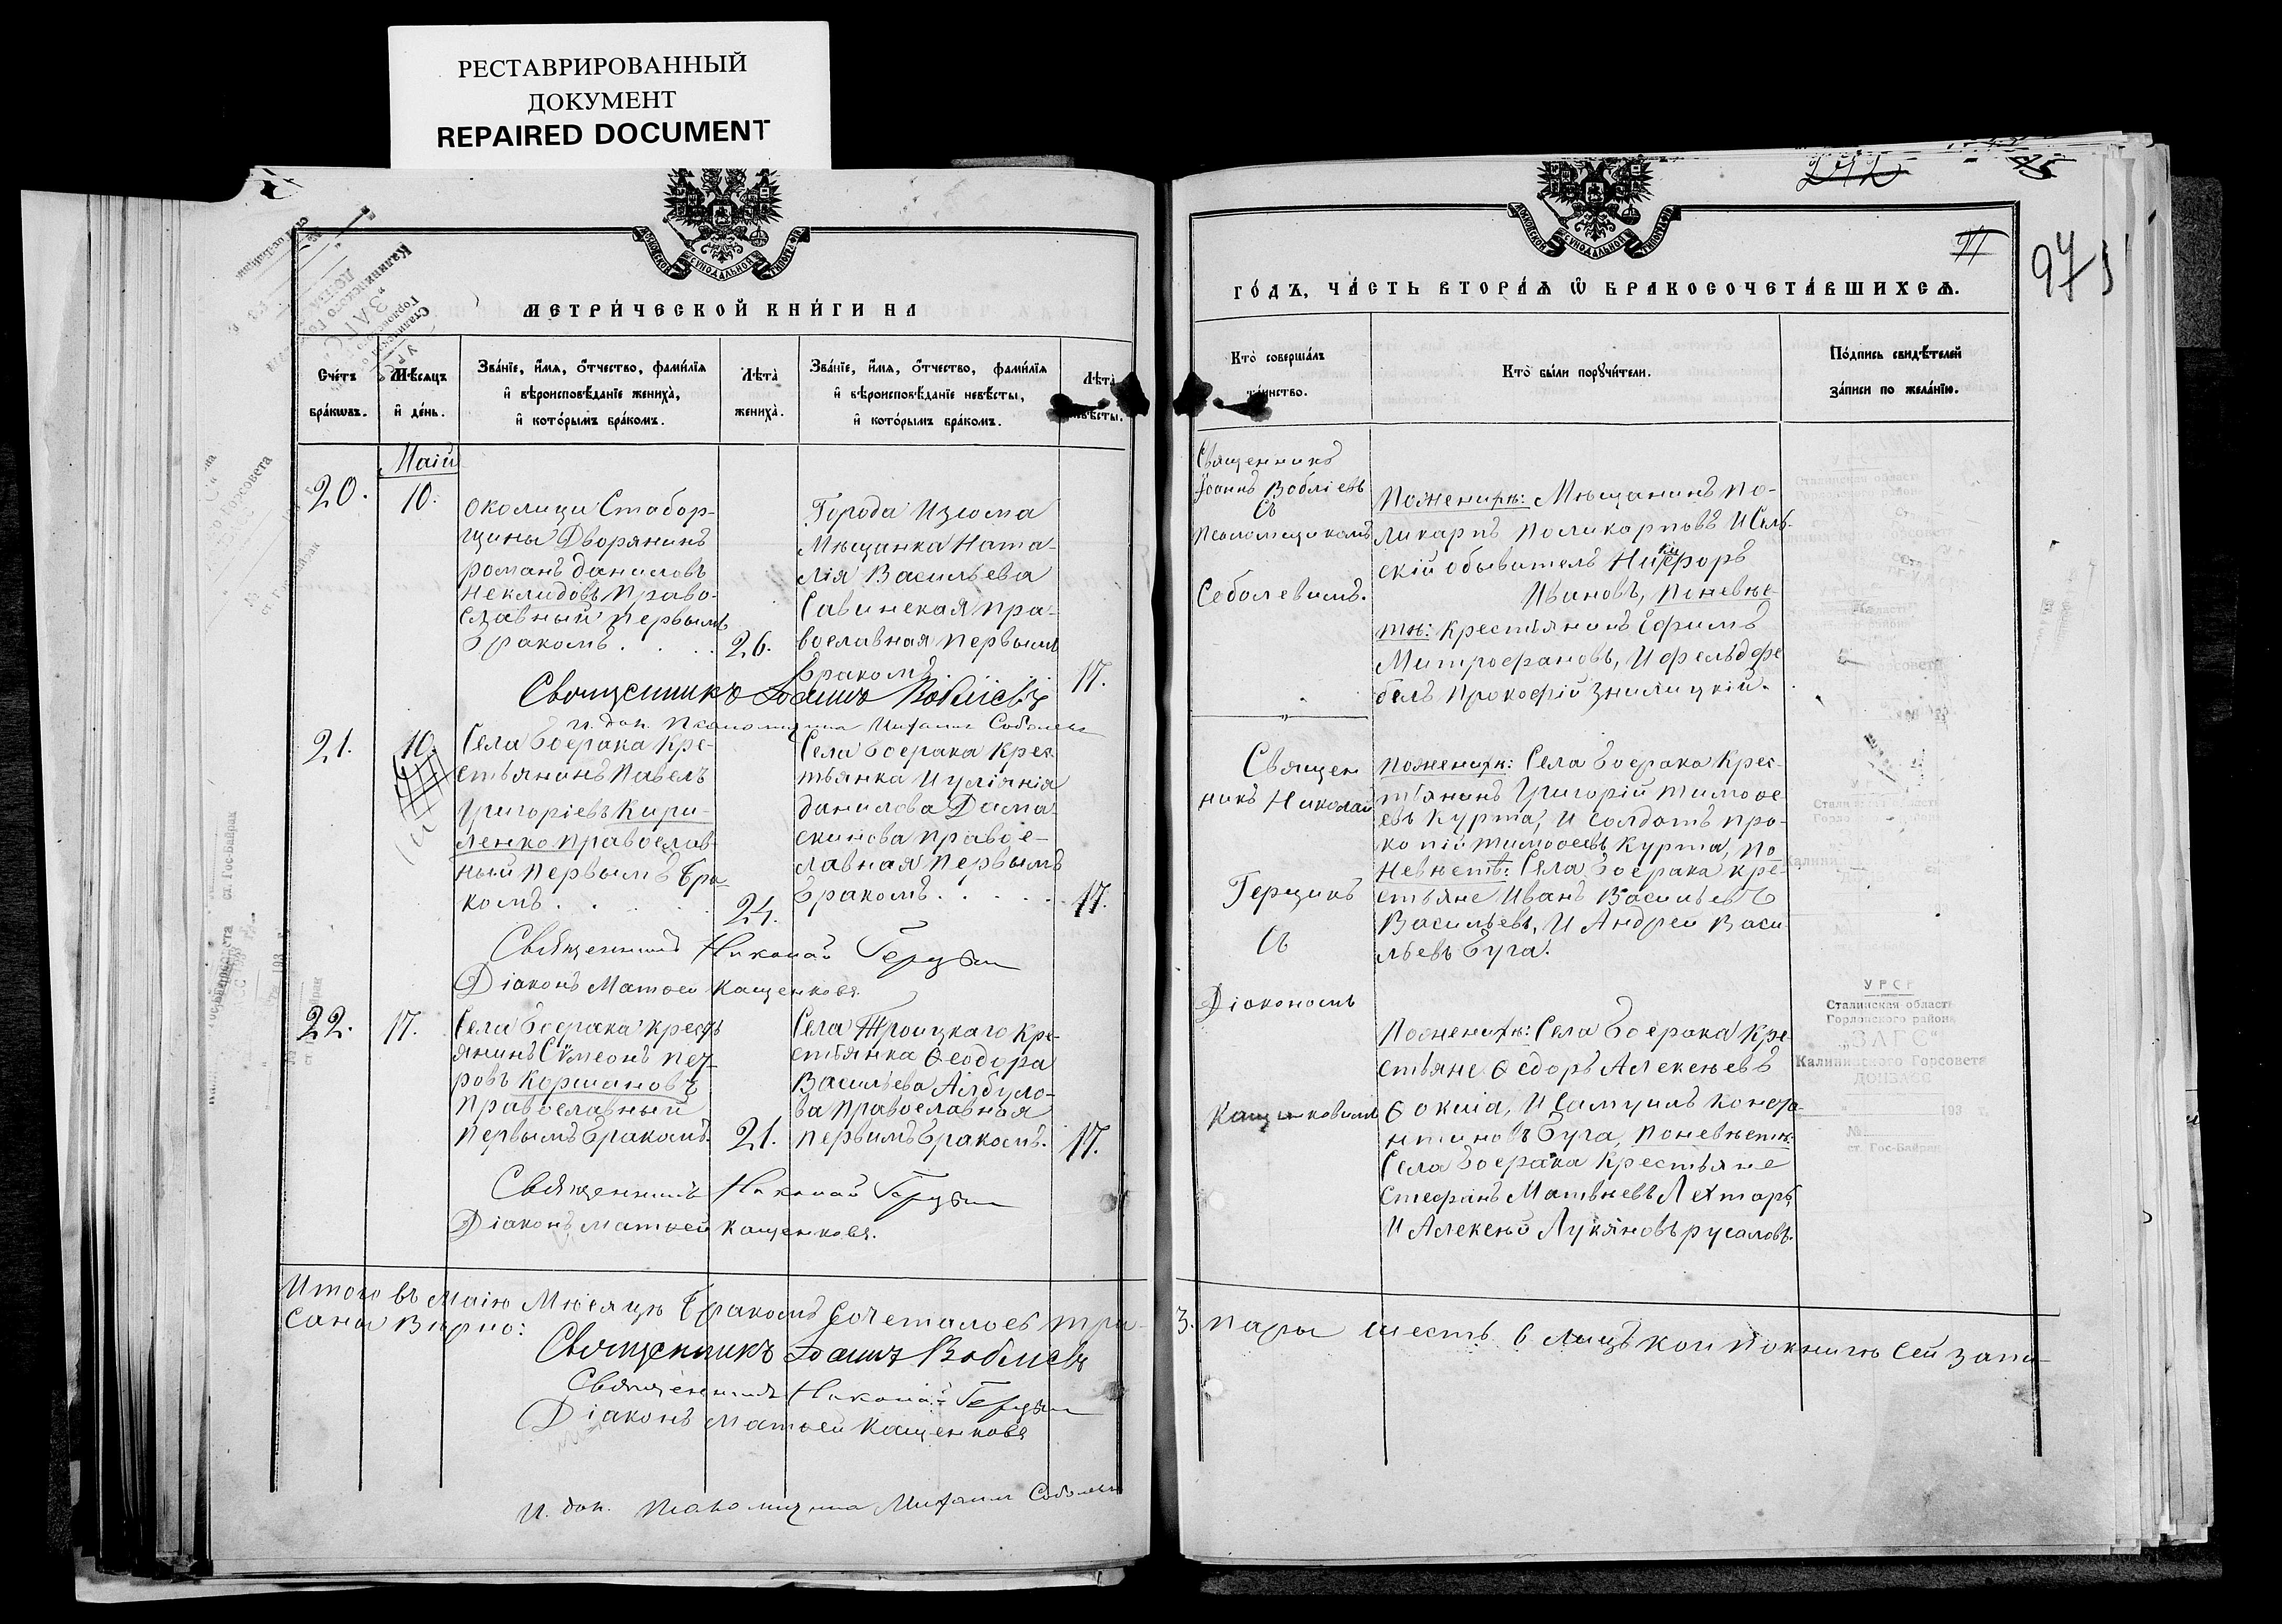 РЕСТАВРИРОВАННЫЙ
ДОКУМЕНТ
REPAIRED DOCUMENT
МОСКОВСКОЙ СУНОДАЛЬНОЙ ТИПОГРАФІИ
МЕТРИ́ЧЕСКОЙ КНИ́ГИ НА
Сче́тъ
бра́кѡвъ.
Мѣ́сяцъ
и҆ де́нь.
Зва́нїе, и҆́мѧ, ѻ҆́тчество, фами́лїѧ
и҆ вѣроисповѣ́данїе жениха̀,
и҆ кото́рымъ бра́комъ.
Лѣ́та
жениха̀.
Зва́нїе, и҆́мѧ, ѻ҆́тчество, фами́лїѧ
и҆ вѣроисповѣ́данїе невѣ́сты,
и҆ кото́рымъ бра́комъ.
Лѣ́та
невѣ́сты.
Маій
20.
10.
околицы Стабор-
щины Дворянинъ
романъ даниловъ
Неклидовъ право-
славный первымъ
бракомъ . . . .
26.
Города Изюма
Мѣщанка Ната-
лія Васильева
Савинская пра-
вославная первымъ
бракомъ
17.
Священникъ Іоаннъ Вобліевъ
и. дол. Псаломщика Михаилъ Соболевъ
21.
10.
Села боерака кре-
стьянинъ Павелъ
Григоріевъ Кири-
ленко православ-
ный первымъ бра-
комъ . . . .
24.
Села боерака крес
тьянка Иуліянія
данилова Дама-
скинова правос-
лавная первымъ
бракомъ. . . . .
17.
Священникъ Николай Герцынъ
Діаконъ Матѳей Кащенковъ.
22.
17.
Села боерака крестъ
янинъ Сѵмеонъ пет
ровъ Коршановъ
православный
первымъ бракомъ.
21.
Села Троицкаго кре-
стьянка Ѳеодора
Васильева Албуло-
ва православная
первымъ бракомъ.
17.
Священникъ Николай Герцынъ
Діаконъ Матѳей Кащенковъ.
Итого въ маію мѣсяцѣ бракомъ сочеталось три
саны Вѣрно:
Священникъ Іоаннъ Вобліевъ
Священникъ Николай Герцынъ
Діаконъ Матѳей Кащенковъ
и. дол. Псаломщика Михаилъ Соболевъ
45
97
МОСКОВСКОЙ СУНОДАЛЬНОЙ ТИПОГРАФІИ
ГО́ДЪ, ЧА́СТЬ ВТОРА́Ѧ Ѽ БРАКОСОЧЕТА́ВШИХСѦ.
Кто̀ соверша́лъ
та́инство.
Кто̀ бы́ли порꙋчи́тели.
По́дпись свидѣ́телей
за́писи по жела́нїю.
Священникъ
Іоаннъ Вобліевъ
Съ
псаломщикомъ
Соболевымъ.
Поженихѣ: Мѣщанинъ по-
ликарпъ поликарповъ И Сель-
скій обыватель Никифоръ
Ивановъ, поневѣс-
тѣ: крестьянинъ Ефимъ
Митрофановъ, И фельдфе
бель Прокофій Зниницкій.
Священ
никъ Николай
Герцинъ
Съ
Діакономъ
Кащенковымъ
Поженихѣ: Села боерака крес-
тьянинъ Григорій тимоѳе
евъ Курта, И солдатъ про-
копій тимоѳеевъ Курта, по
невѣстѣ: Села боерака кре-
стьяне Иванъ Васильевъ
Васильевъ, И Андрей Васи
льевъ буга.
Поженихѣ: Села боерака кре
стьяне Ѳедоръ Алексѣевъ
Ѳокша, И Самуилъ конста-
нтиновъ буга, поневѣстѣ
Села боерака крестьяне
Стефанъ Матвѣевъ Лехтарь,
И Алексѣй Лукяновъ русаловъ.
3. пары шесть 6 лицъ кои покнигѣ сей запи-
УРСР
Сталинская область
Горловского района
„ЗАГС“
Калининского Горсовета
ДОНБАСС
193 г.
№
ст. Гос-Байрак